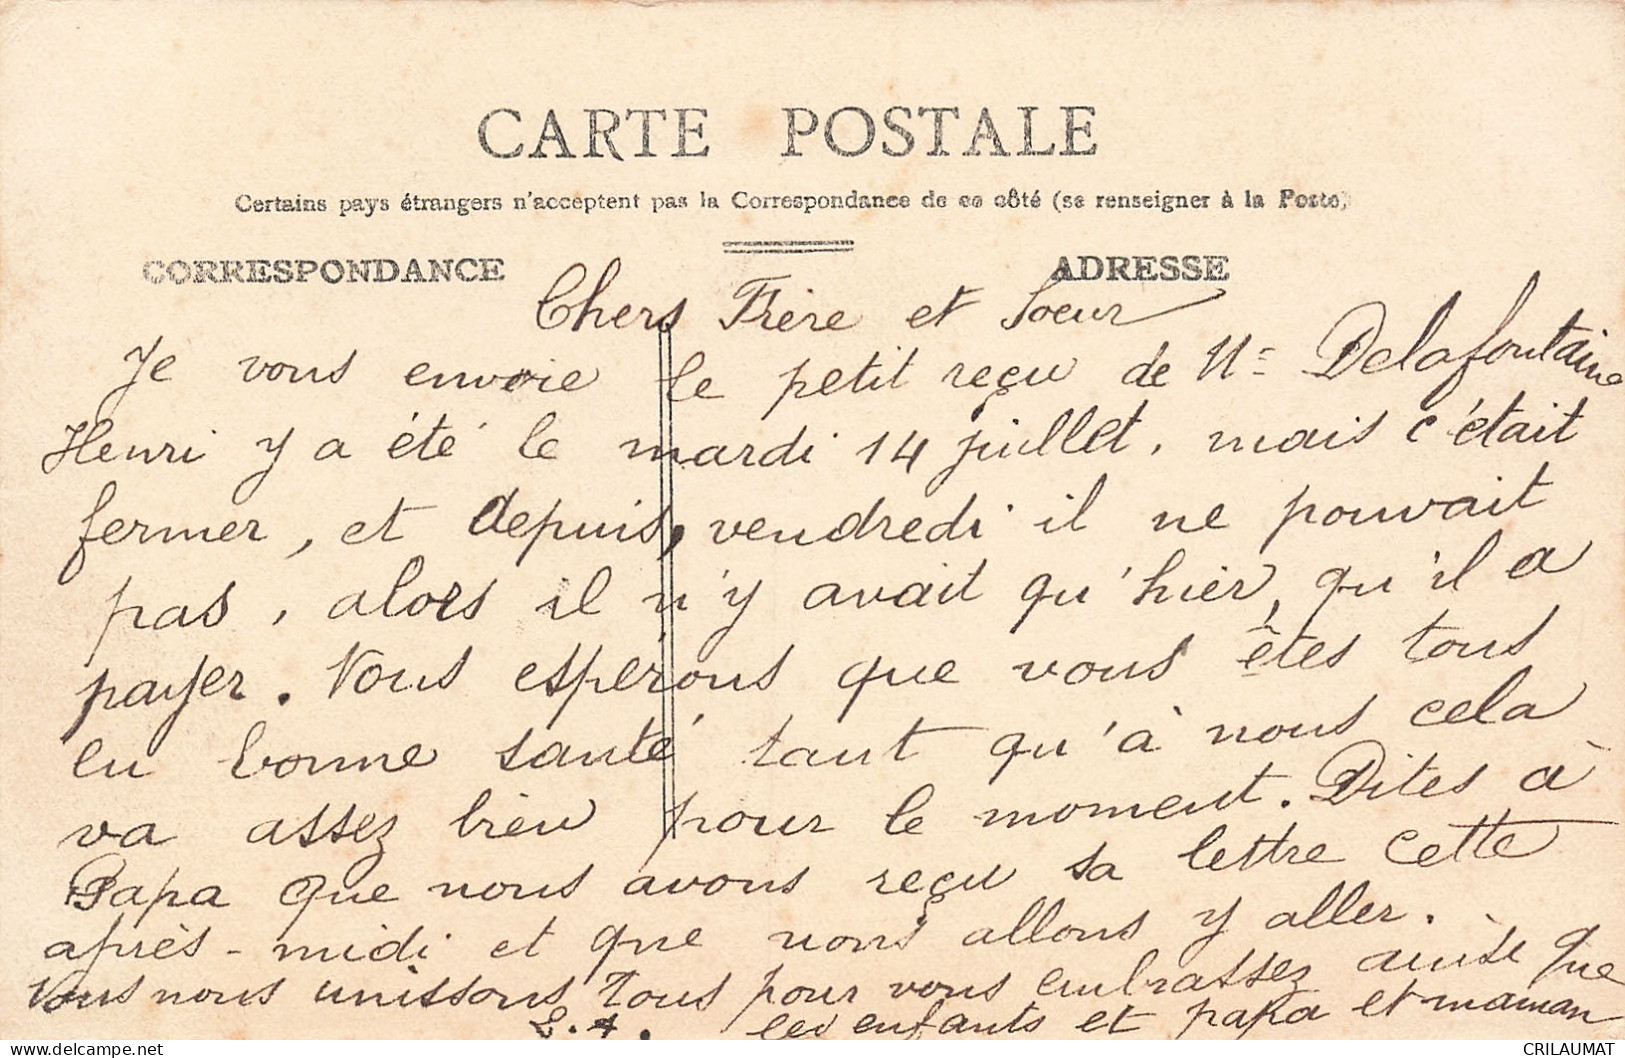 CARTE POSTALE
Certains pays étrangers n'acceptent pas la Correspondance de ce côté (se renseigner à la Poste)
CORRESPONDANCE
ADRESSE
Chers Frère et Soeur
Je vous envoie le petit reçu de Delafontaine
Henri y a été le mardi 14 juillet, mais c'était
fermer, et depuis, vendredi il ne pouvait
pas, alors il n'y avait qu'hier, qu'il a
payer. Nous espérons que vous êtes tous
en bonne santé tant qu'à nous cela
va assez bien pour le moment. Dites à
Papa que nous avons reçu sa lettre cette
après-midi et que nous allons y aller.
Nous nous unissons tous pour vous embrassez ainsi que
les enfants et papa et maman
CRILAUMAT